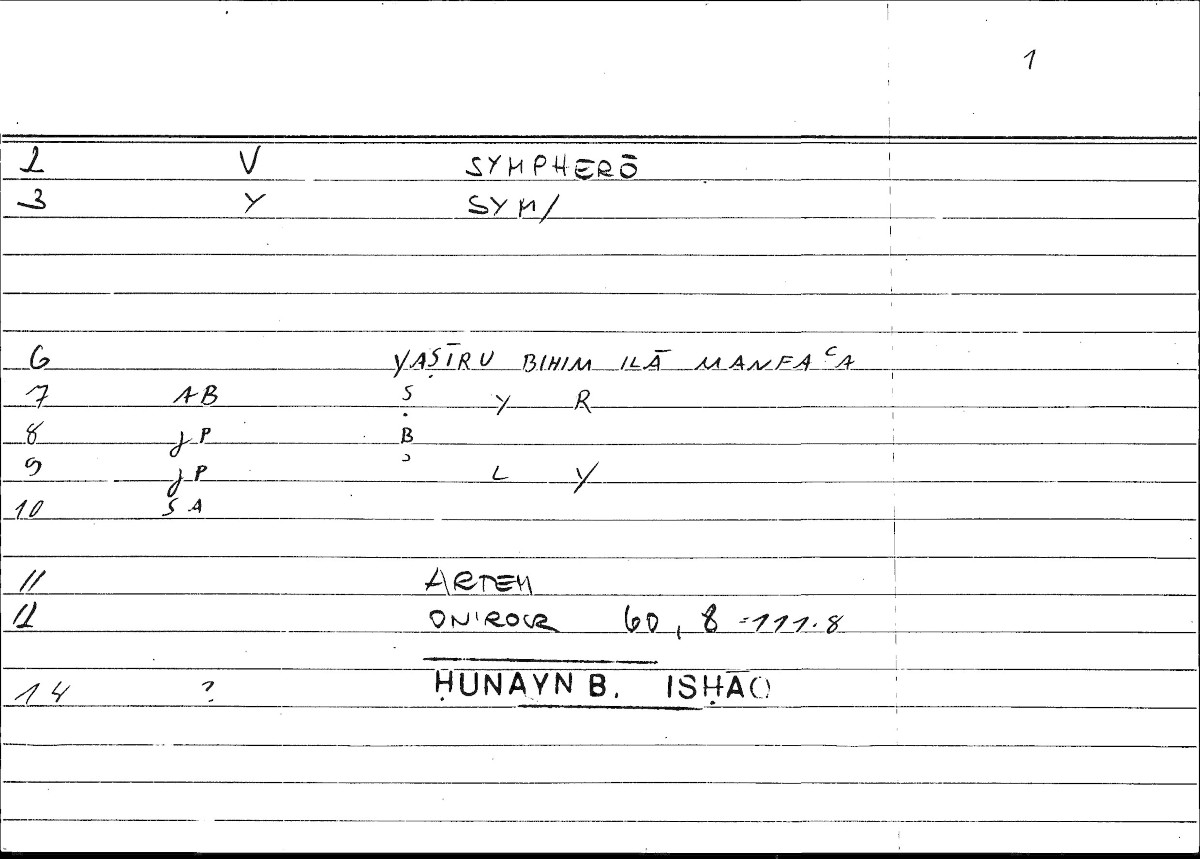 1
2 V SYMPHERŌ
3 Y SYM/
6 YAṢĪRU BIHIM ILĀ MANFAʿA
7 AB Ṣ Y R
8 jP B
9 jP ʾ L Y
10 SA
11 ARTEM
12 ONIROCR 60, 8 = 111.8
14 ? ḤUNAYN B. ISḤĀQ